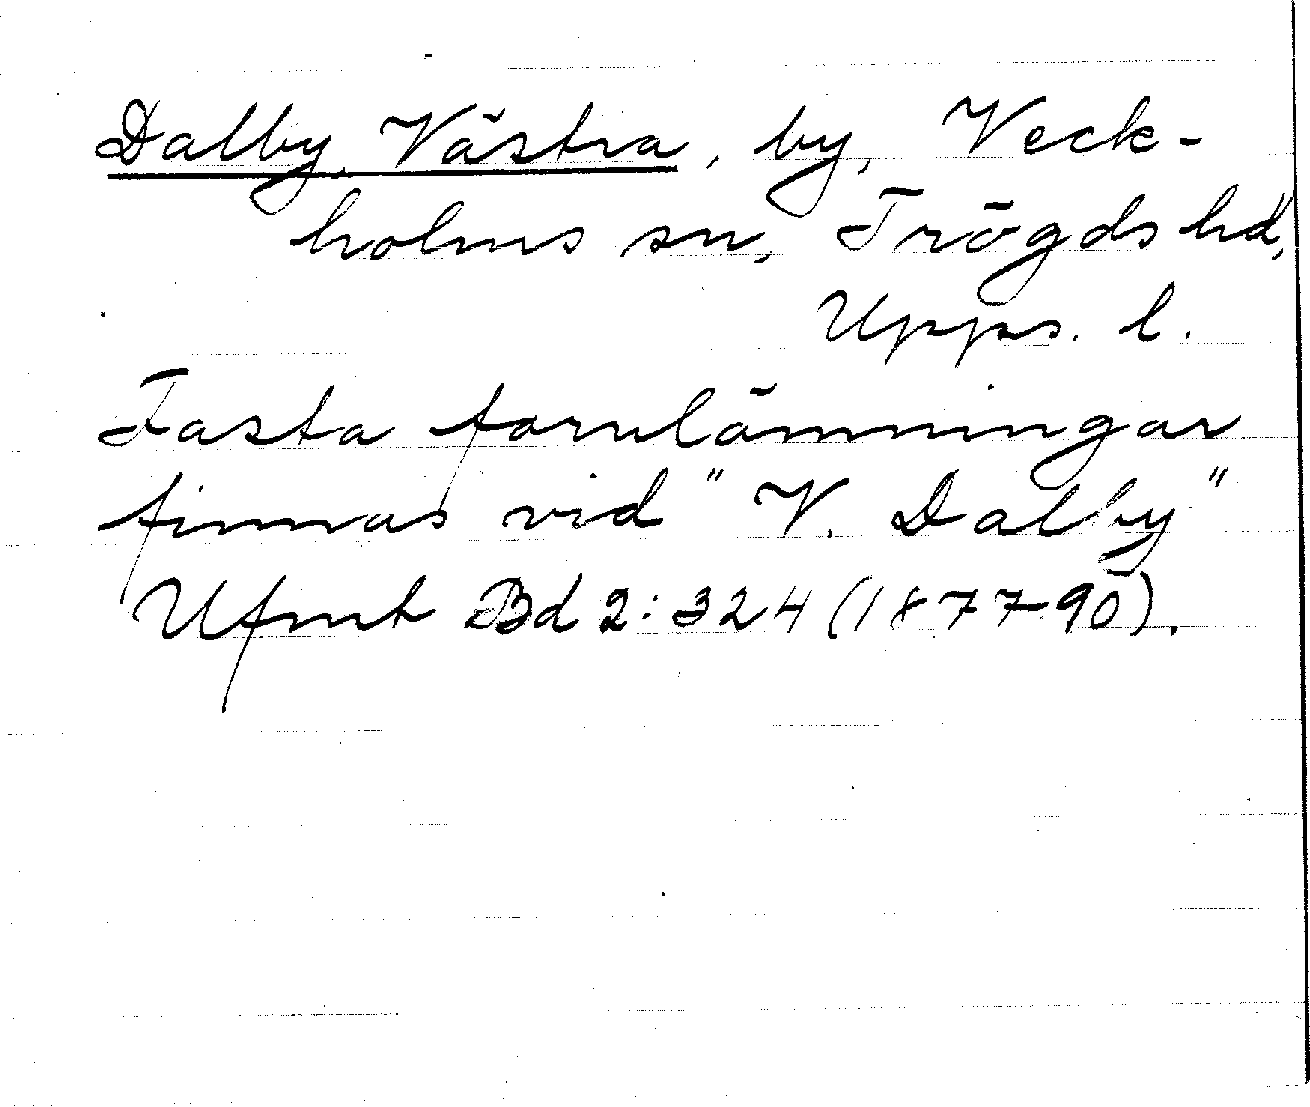 Dalby, Västra, by, Veck-
holms sn, Trögds hd,
Upps. l.
Fasta fornlämningar
finnas vid "V. Dalby"
Ufmt Bd 2:324 (1877-90).